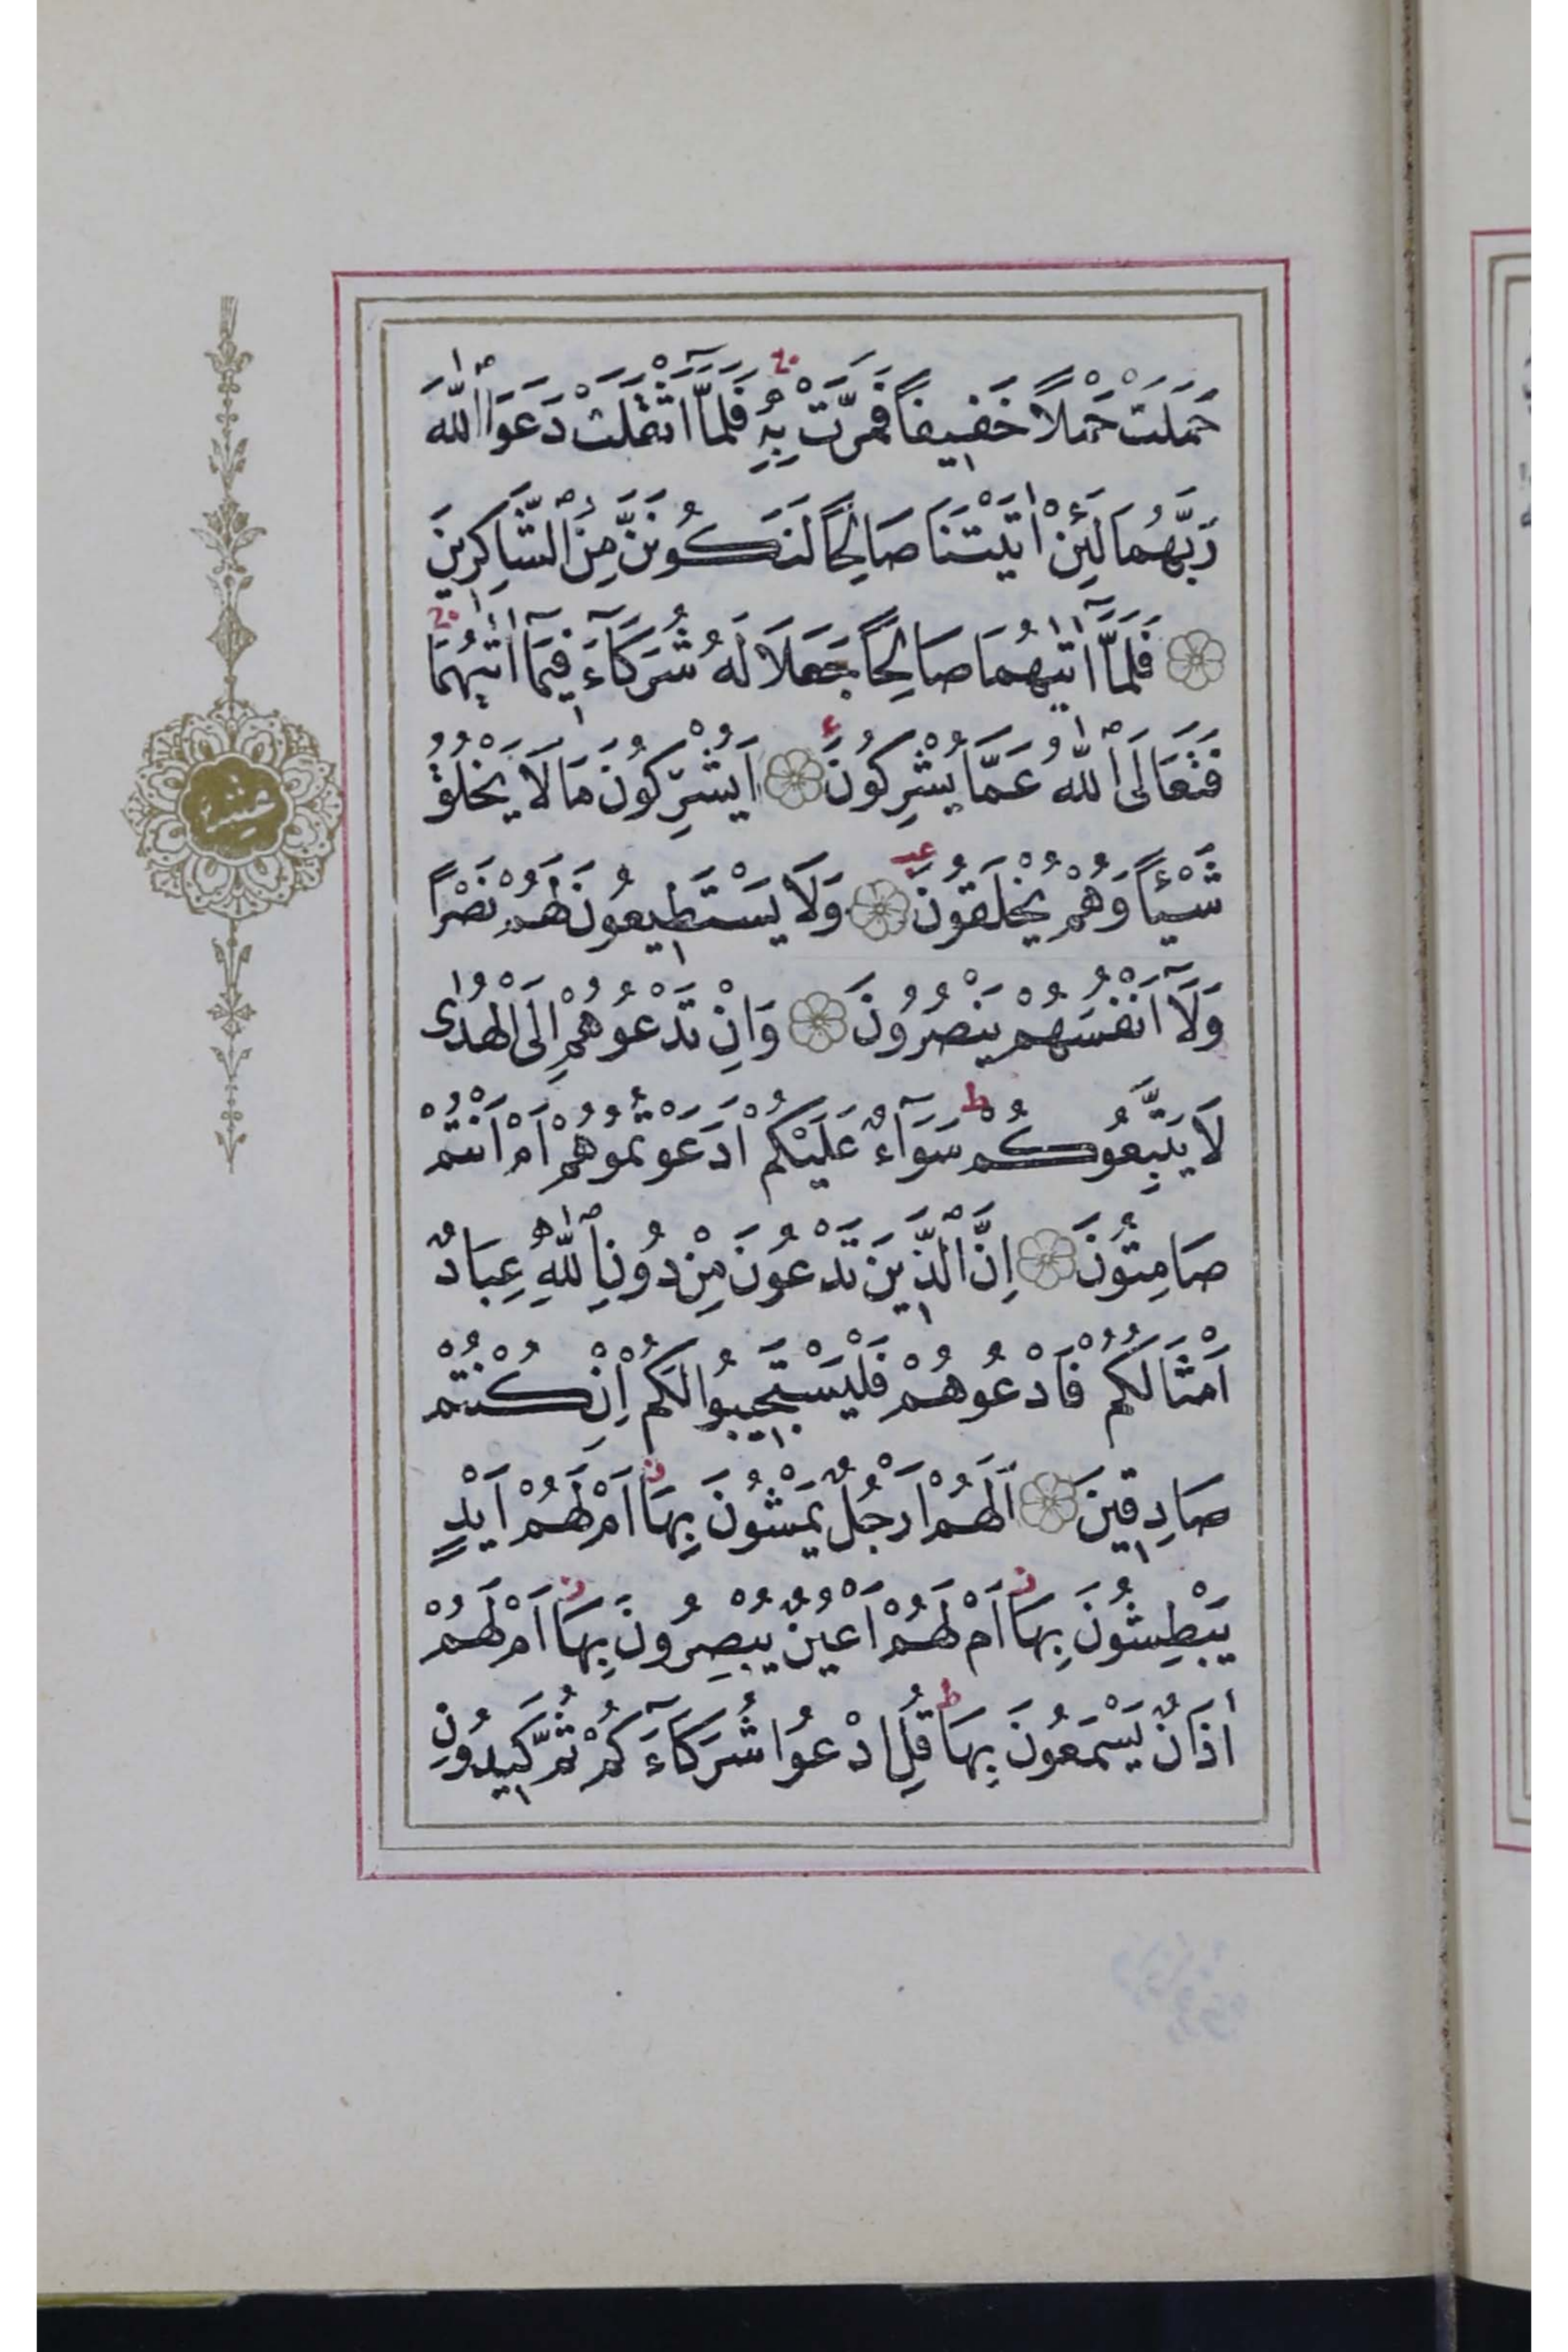 حَمَلَتْ حَمْلًا خَفِيفًا فَمَرَّتْ بِهِ فَلَمَّا اَثْقَلَتْ دَعَوَا اللّٰهَ
رَبَّهُمَا لَئِنْ اٰتَيْتَنَا صَالِحًا لَنَكُونَنَّ مِنَ الشَّاكِرِينَ
فَلَمَّا اٰتٰيهُمَا صَالِحًا جَعَلَا لَهُ شُرَكَآءَ فِيمَا اٰتٰيهُمَا
فَتَعَالَى اللّٰهُ عَمَّا يُشْرِكُونَ اَيُشْرِكُونَ مَا لَا يَخْلُقُ
شَيْئًا وَهُمْ يُخْلَقُونَ وَلَا يَسْتَطِيعُونَ لَهُمْ نَصْرًا
وَلَا اَنْفُسَهُمْ يَنْصُرُونَ وَاِنْ تَدْعُوهُمْ اِلَى الْهُدٰى
لَا يَتَّبِعُوكُمْ سَوَآءٌ عَلَيْكُمْ اَدَعَوْتُمُوهُمْ اَمْ اَنْتُمْ
صَامِتُونَ اِنَّ الَّذِينَ تَدْعُونَ مِنْ دُونِ اللّٰهِ عِبَادٌ
اَمْثَالُكُمْ فَادْعُوهُمْ فَلْيَسْتَجِيبُوا لَكُمْ اِنْ كُنْتُمْ
صَادِقِينَ اَلَهُمْ اَرْجُلٌ يَمْشُونَ بِهَا اَمْ لَهُمْ اَيْدٍ
يَبْطِشُونَ بِهَا اَمْ لَهُمْ اَعْيُنٌ يُبْصِرُونَ بِهَا اَمْ لَهُمْ
اٰذَانٌ يَسْمَعُونَ بِهَا قُلِ ادْعُوا شُرَكَآءَكُمْ ثُمَّ كِيدُونِ